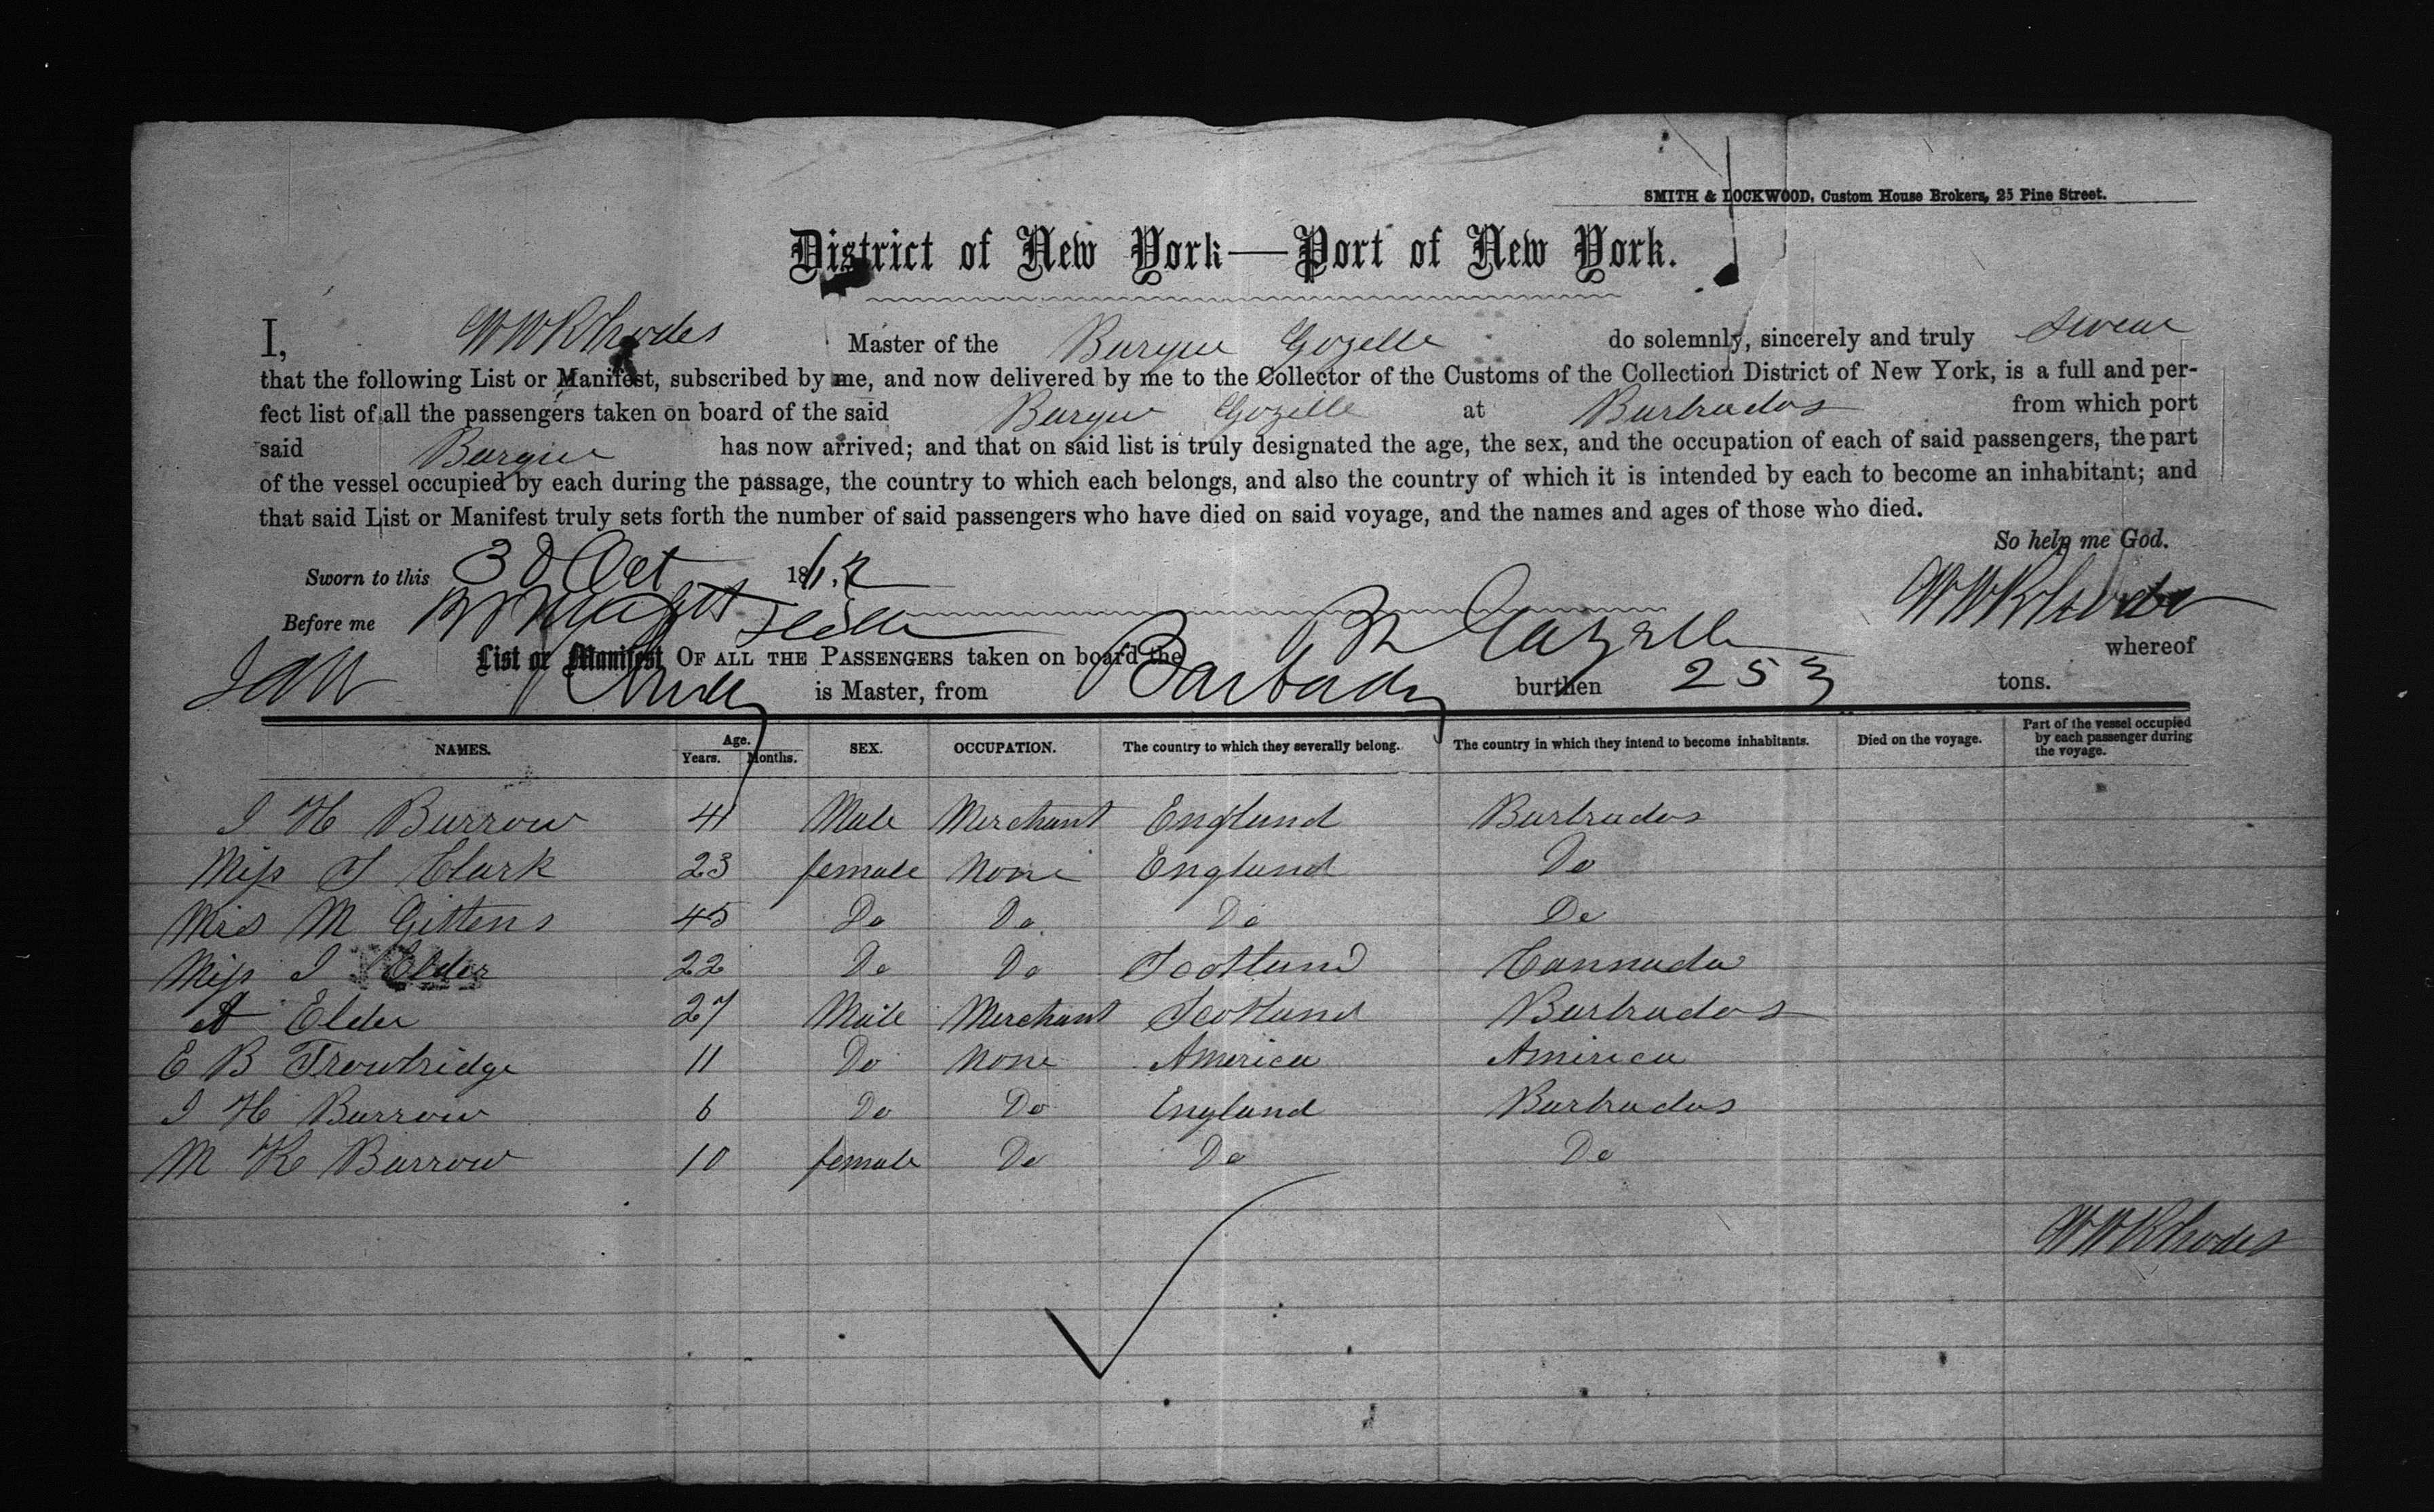 SMITH & LOCKWOOD, Custom House Brokers, 25 Pine Street.
District of New York—Port of New York.
I, W W Rhodes Master of the Barque Gozelle do solemnly, sincerely and truly swear
that the following List or Manifest, subscribed by me, and now delivered by me to the Collector of the Customs of the Collection District of New York, is a full and per-
fect list of all the passengers taken on board of the said Barque Gozelle at Barbados from which port
said Barque has now arrived; and that on said list is truly designated the age, the sex, and the occupation of each of said passengers, the part
of the vessel occupied by each during the passage, the country to which each belongs, and also the country of which it is intended by each to become an inhabitant; and
that said List or Manifest truly sets forth the number of said passengers who have died on said voyage, and the names and ages of those who died.
So help me God.
Sworn to this Oct 186
Before me W W Rhodes
List or Manifest OF ALL THE PASSENGERS taken on board the Gazelle whereof
is Master, from Barbados burthen 253 tons.
NAMES. Age. Years. Months. SEX. OCCUPATION. The country to which they severally belong. The country in which they intend to become inhabitants. Died on the voyage. Part of the vessel occupied by each passenger during the voyage.
J H Burrow 41 Male Merchant England Barbados
Miss S Clark 23 female None England Do
Mrs M Gittens 45 Do Do Do Do
Miss J Elder 22 Do Do Scotland Cannada
A Elder 27 Male Merchant Scotland Barbados
E B Trowbridge 11 Do None America America
J H Burrow 6 Do Do England Barbados
M K Burrow 10 female Do Do Do
W W Rhodes